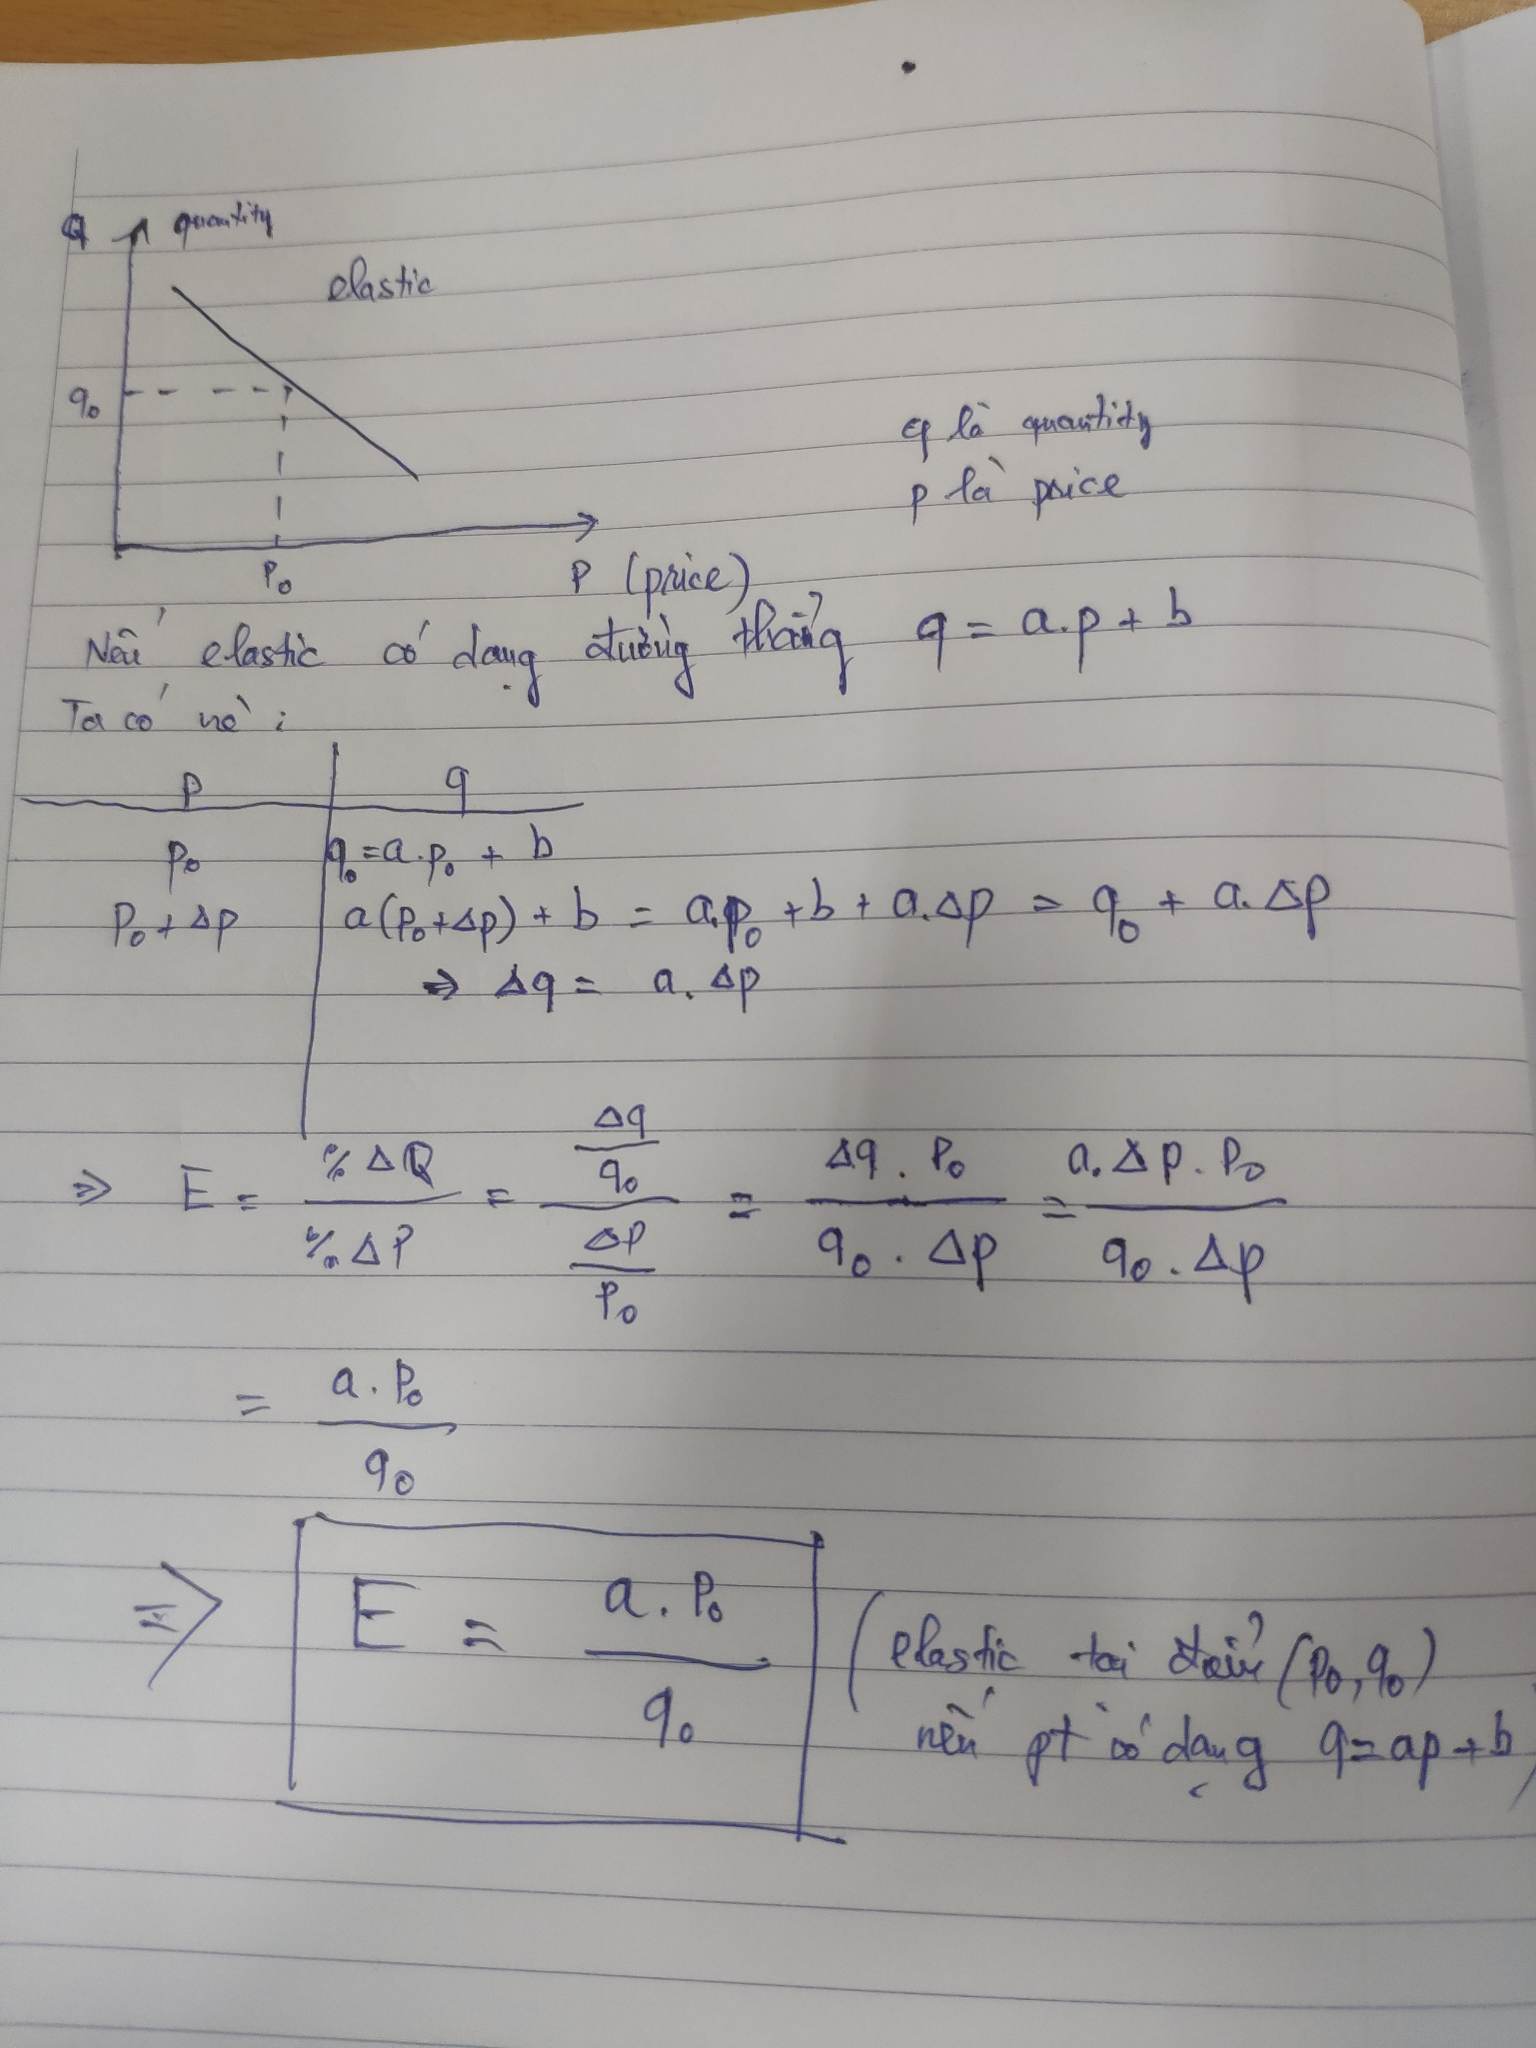 Q quantity
elastic
q₀
q là quantity
p là price
P₀
P (price)
Nếu elastic có dạng đường thẳng q = a.p + b
Ta có nè :
P q
P₀ q₀ = a.p₀ + b
P₀ + Δp a(p₀+Δp) + b = a.p₀ + b + a.Δp = q₀ + a.Δp
⇒ Δq = a. Δp
⇒ E = % ΔQ / % ΔP = (Δq / q₀) / (ΔP / P₀) = Δq . P₀ / q₀ . Δp = a. Δp . P₀ / q₀ . Δp
= a . P₀ / q₀
⇒ E = a . P₀ / q₀
(elastic tại điểm (p₀, q₀)
nếu pt có dạng q = ap + b)